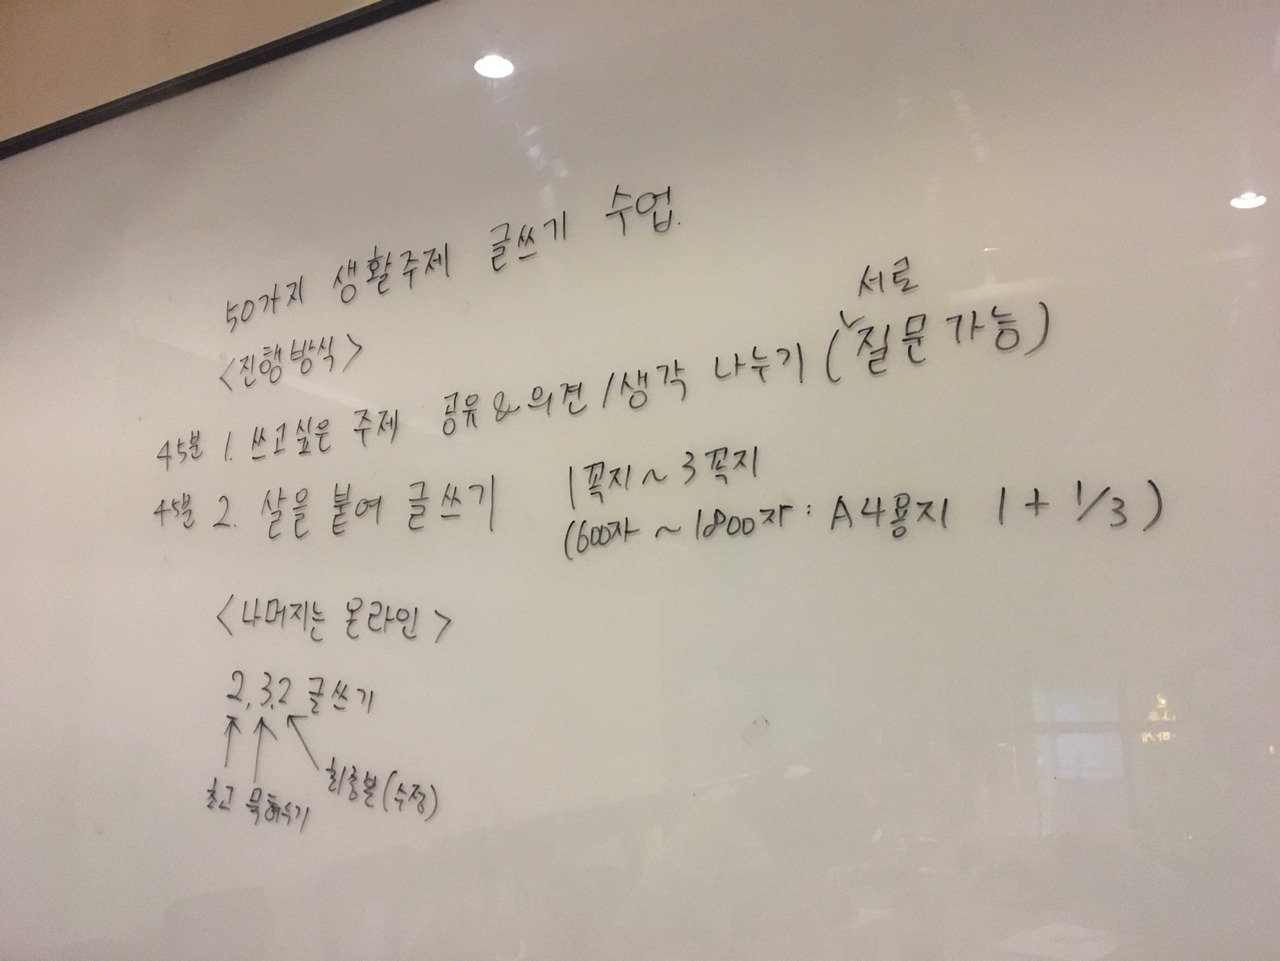 50가지 생활주제 글쓰기 수업.
<진행방식>
45분 1. 쓰고싶은 주제 공유 & 의견/생각 나누기 (서로 질문 가능)
45분 2. 살을 붙여 글쓰기 1꼭지~3꼭지
(600자 ~ 1800자 : A4용지 1 + 1/3)
<나머지는 온라인>
2,3,2 글쓰기
초고 묵혀두기 최종본(수정)